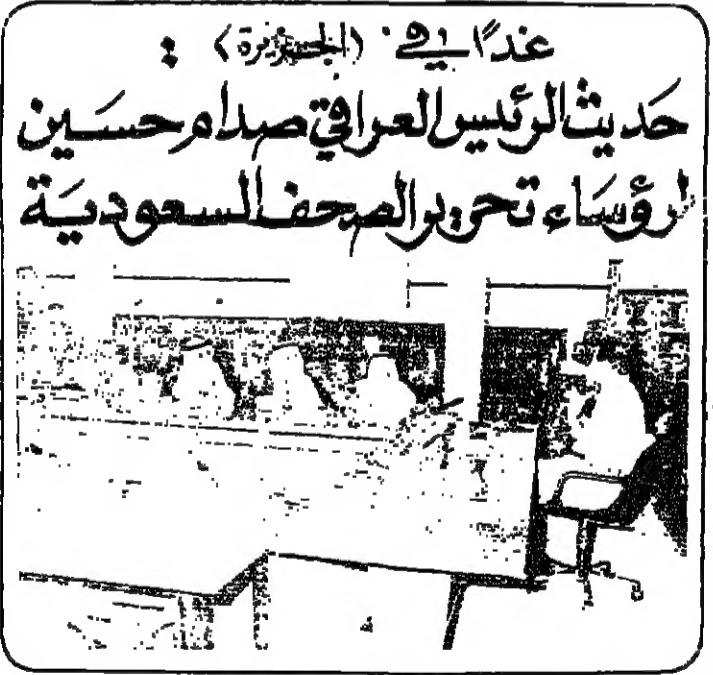 غدًا في (الجزيرة) :
حديث الرئيس العراقي صدام حسين
لرؤساء تحرير الصحف السعودية